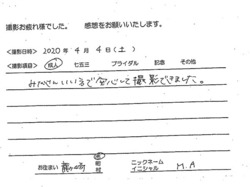 撮影お疲れ様でした。 感想をお願いいたします。
<撮影日時> 2020年 4月 4日(土)
<撮影項目> 成人 七五三 ブライダル 記念 その他
みなさんいい方で安心して撮影できました。
お住まい 龍ヶ崎 市
ニックネーム イニシャル M.A